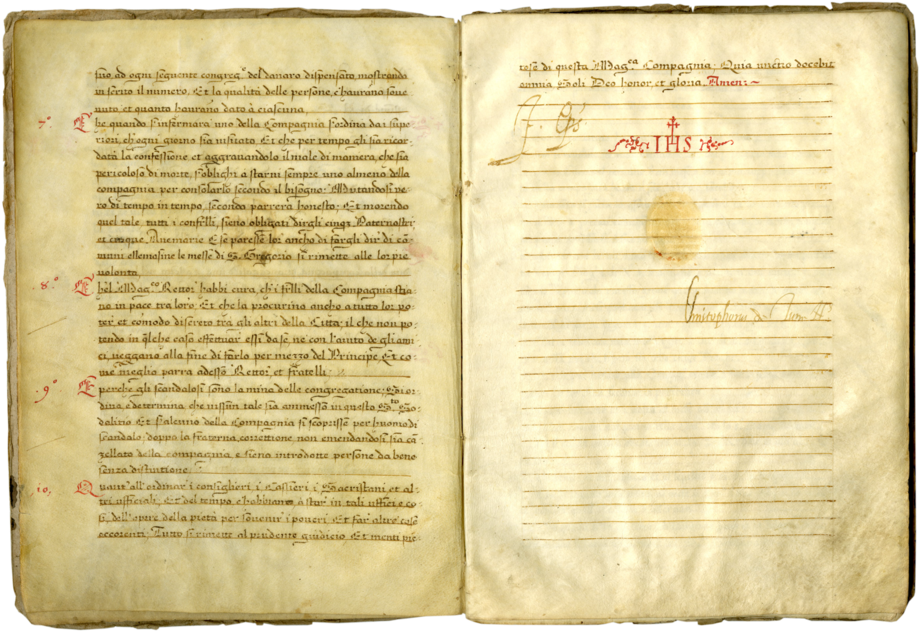 suo ad ogni sequente congreg.º del danaro dispensato, mostrando
in scrito il numero, Et la qualità delle persone, c'havrano sove
nuto, et quanto havrano dato à ciascuna.
7.º Che quando s'infermarà uno della Compagnia s'ordina da i supe-
riori, ch'ogni giorno sia visitato, Et che per tempo gli sia ricor-
data la confessione, et aggravandolo il male di maniera, che sia
pericoloso di morte, s'oblighi a starvi sempre uno almeno della
compagnia per consolarlo secondo il bisogno; Mutandosi pe-
rò di tempo in tempo, seconda parrerà honesto; Et morendo
quel tale tutti i confrlli, sieno obligati dirgli cinq; Paternostri,
et cinque Avemarie E se paresse lor' ancho di fargli dir' di co-
muni ellemosine le messe di S. Gregorio si rimette alle lor pie
volontà.
8.º Chel Mag.co Rettor' habbi cura, ch'i frlli della Compagnia stia
no in pace tra loro, Et che la procurino ancho a tutto lor po-
ter, et comodo discreto tra gli altri della Città; il che non po-
tendo in qlche caso effettuar' essi da se, ne con l'aiuto de gli ami-
ci, veggano alla fine di farlo per mezzo del Principe, Et co-
me meglio parra adesso Rettor', et fratelli.
9.º E perche gli scandalosi sono la ruina delle congregatione; Si or-
dina, e determina che nissun tale sia ammesso in questo S.to So-
dalitio Et s'alcuno della Compagnia si scoprisse per huomo di
scandalo, doppo la fraterna correttione, non emendandosi sia can-
zellato della compagnia, e siena introdotte persone da bene
senza distintione.
10. Quant' all'ordinar' i consiglieri, i Cassieri, i Sacristani, et al-
tri ufficiali, Et del tempo, c'habbiano à star' in tali ufficii, e co-
si, dell'opere della pietà per sovenir' i poveri Et far' altre cose
occorenti, Tutto si rimette al prudente giudicio, Et menti pie-
tose di questa Mag.ca Compagnia; Quia unctio docebit
omnia, Soli Deo honor, et gloria. Amen:~
IHS
Christophorus de